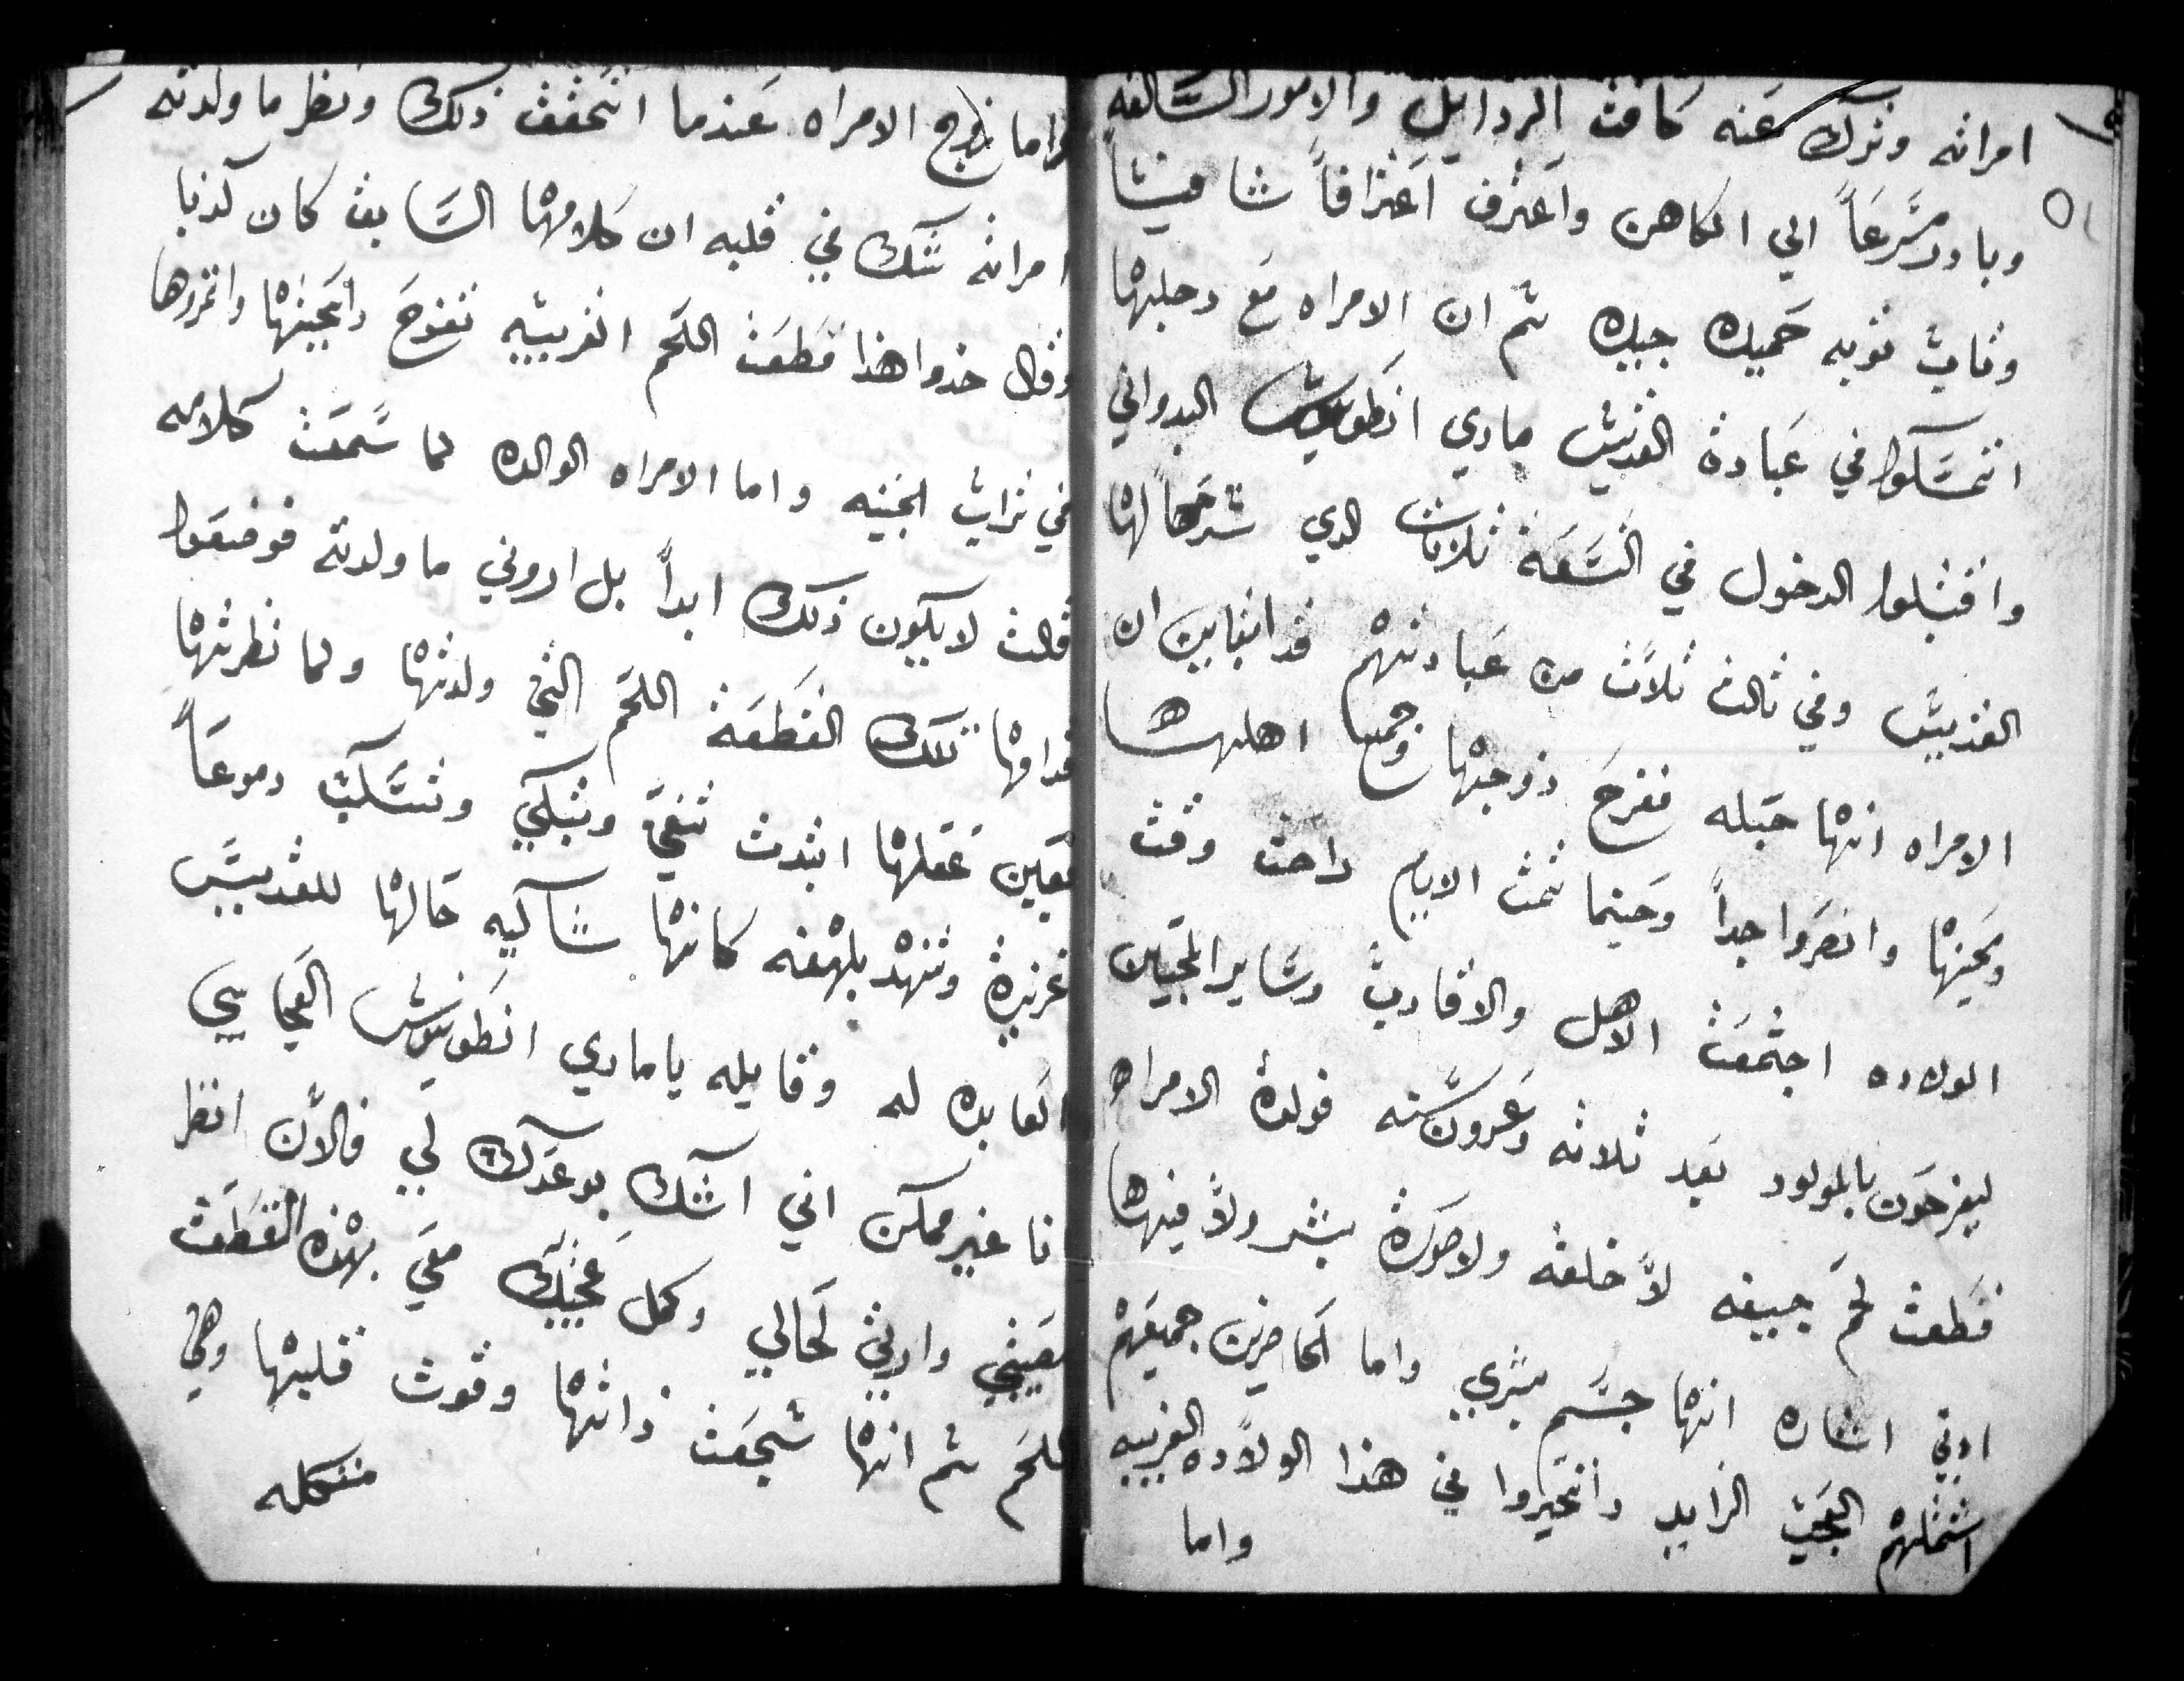 امراته وترك عنه كافت الردايل والامور السالفه
وبادر مسرعاً الي الكاهن واعترف اعترافاً شافياً
وتاب توبه حميده جيده ثم ان الامراه مع رجلها
اتمسكوا في عبادة القديس ماري انطونيوس البدواني
واقتبلوا الدخول في التسعة ثلاثات الدي شرحها لها
القديس وفي ثالث ثلاث من عبادتهم قد انباين ان
الامراه انها حبله ففرح زوجها وجميع اهلها
ومحبينها وانصروا جداً وحينما تمت الايام راحت وقت
الولاده اجتمعت الاهل والاقارب وساير المحبين
ليفرحون بالمولود بعد ثلاثه وعرون سنه فولدة الامراه
قطعت لحم جيفه لا خلقه ولا صورة بشر ولا فيها
ادني اشاره انها جسم بشري واما الحاضرين جميعهم
اشتملهم العجب الزايد واتحيروا في هذا الولاده الغريبه
واما
واما زوج الامراه عندما اتحقق ذلك ونظر ما ولدته
امراته شك في قلبه ان كلامها السابق كان كذبا
وقال خدوا هذا قطعت اللحم الغريبه
في تراب الجنينه واما الامراه الوالده لما سمعت كلامه
قالت لا يكون ذلك ابداً بل اروني ما ولدته فوضعوا
قدامها تلك القطعة اللحم التي ولدتها ولما نظرتها
بعين عقلها ابتدت تنعي وتبكي وتسكب دموعاً
غزيرة وتنهد بلهفه كانها شاكيه حالها للقديس
العابده له وقايله يا ماري انطونيوس العجايبي
انا غير ممكن اني اشك بوعدك لي فالان انظر
لعيني واريني لحالي وكمل عجبك معي بهذه القطعت
اللحم ثم انها شجعت ذاتها وقوت قلبها وهي
متكله